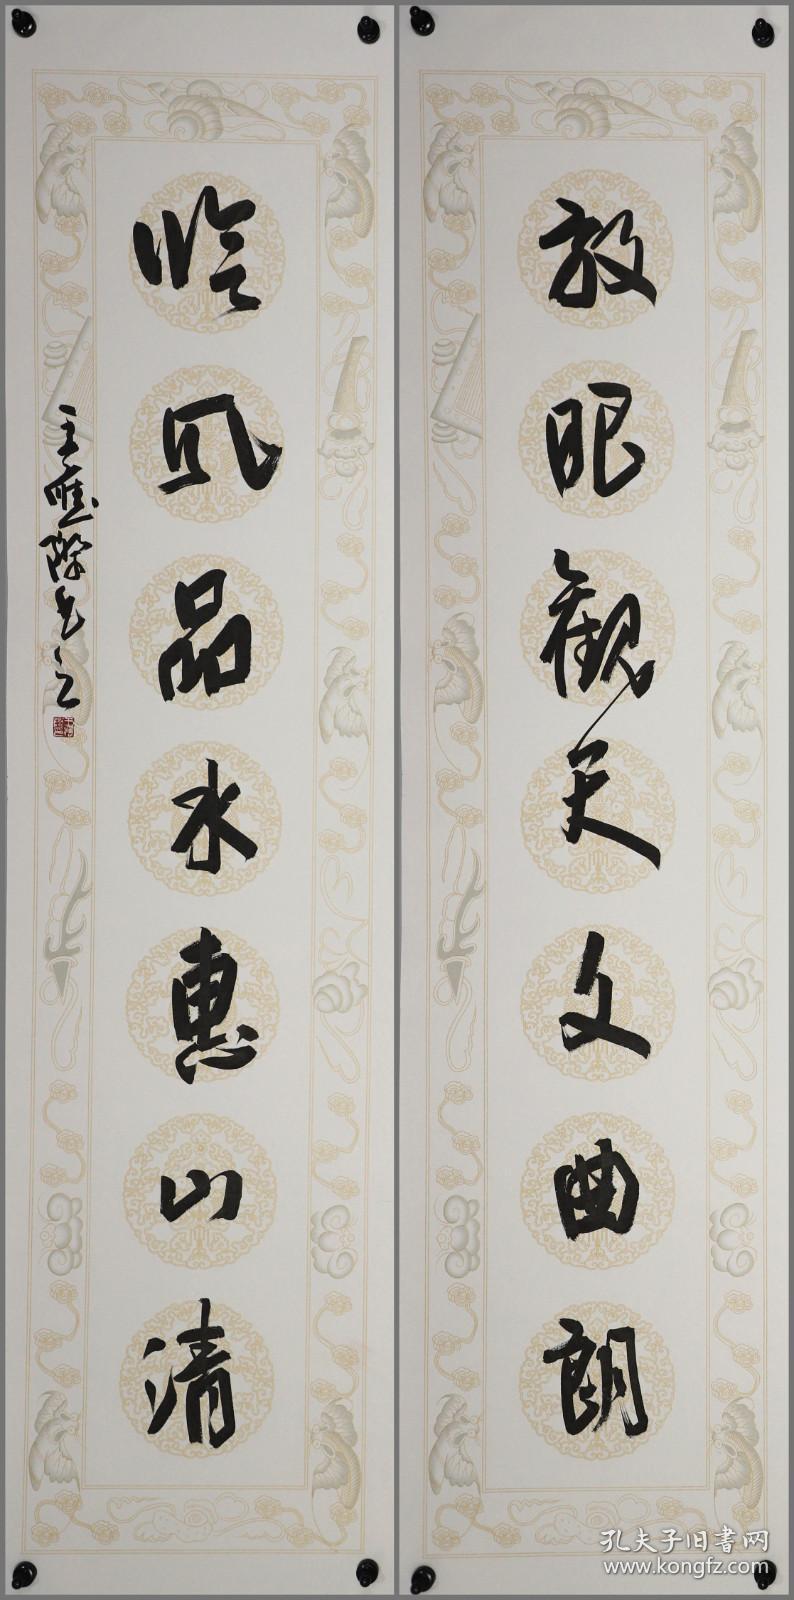 放眼觀天文曲朗
临风品水惠山清
王應際书
孔夫子旧书网
www.kongfz.com